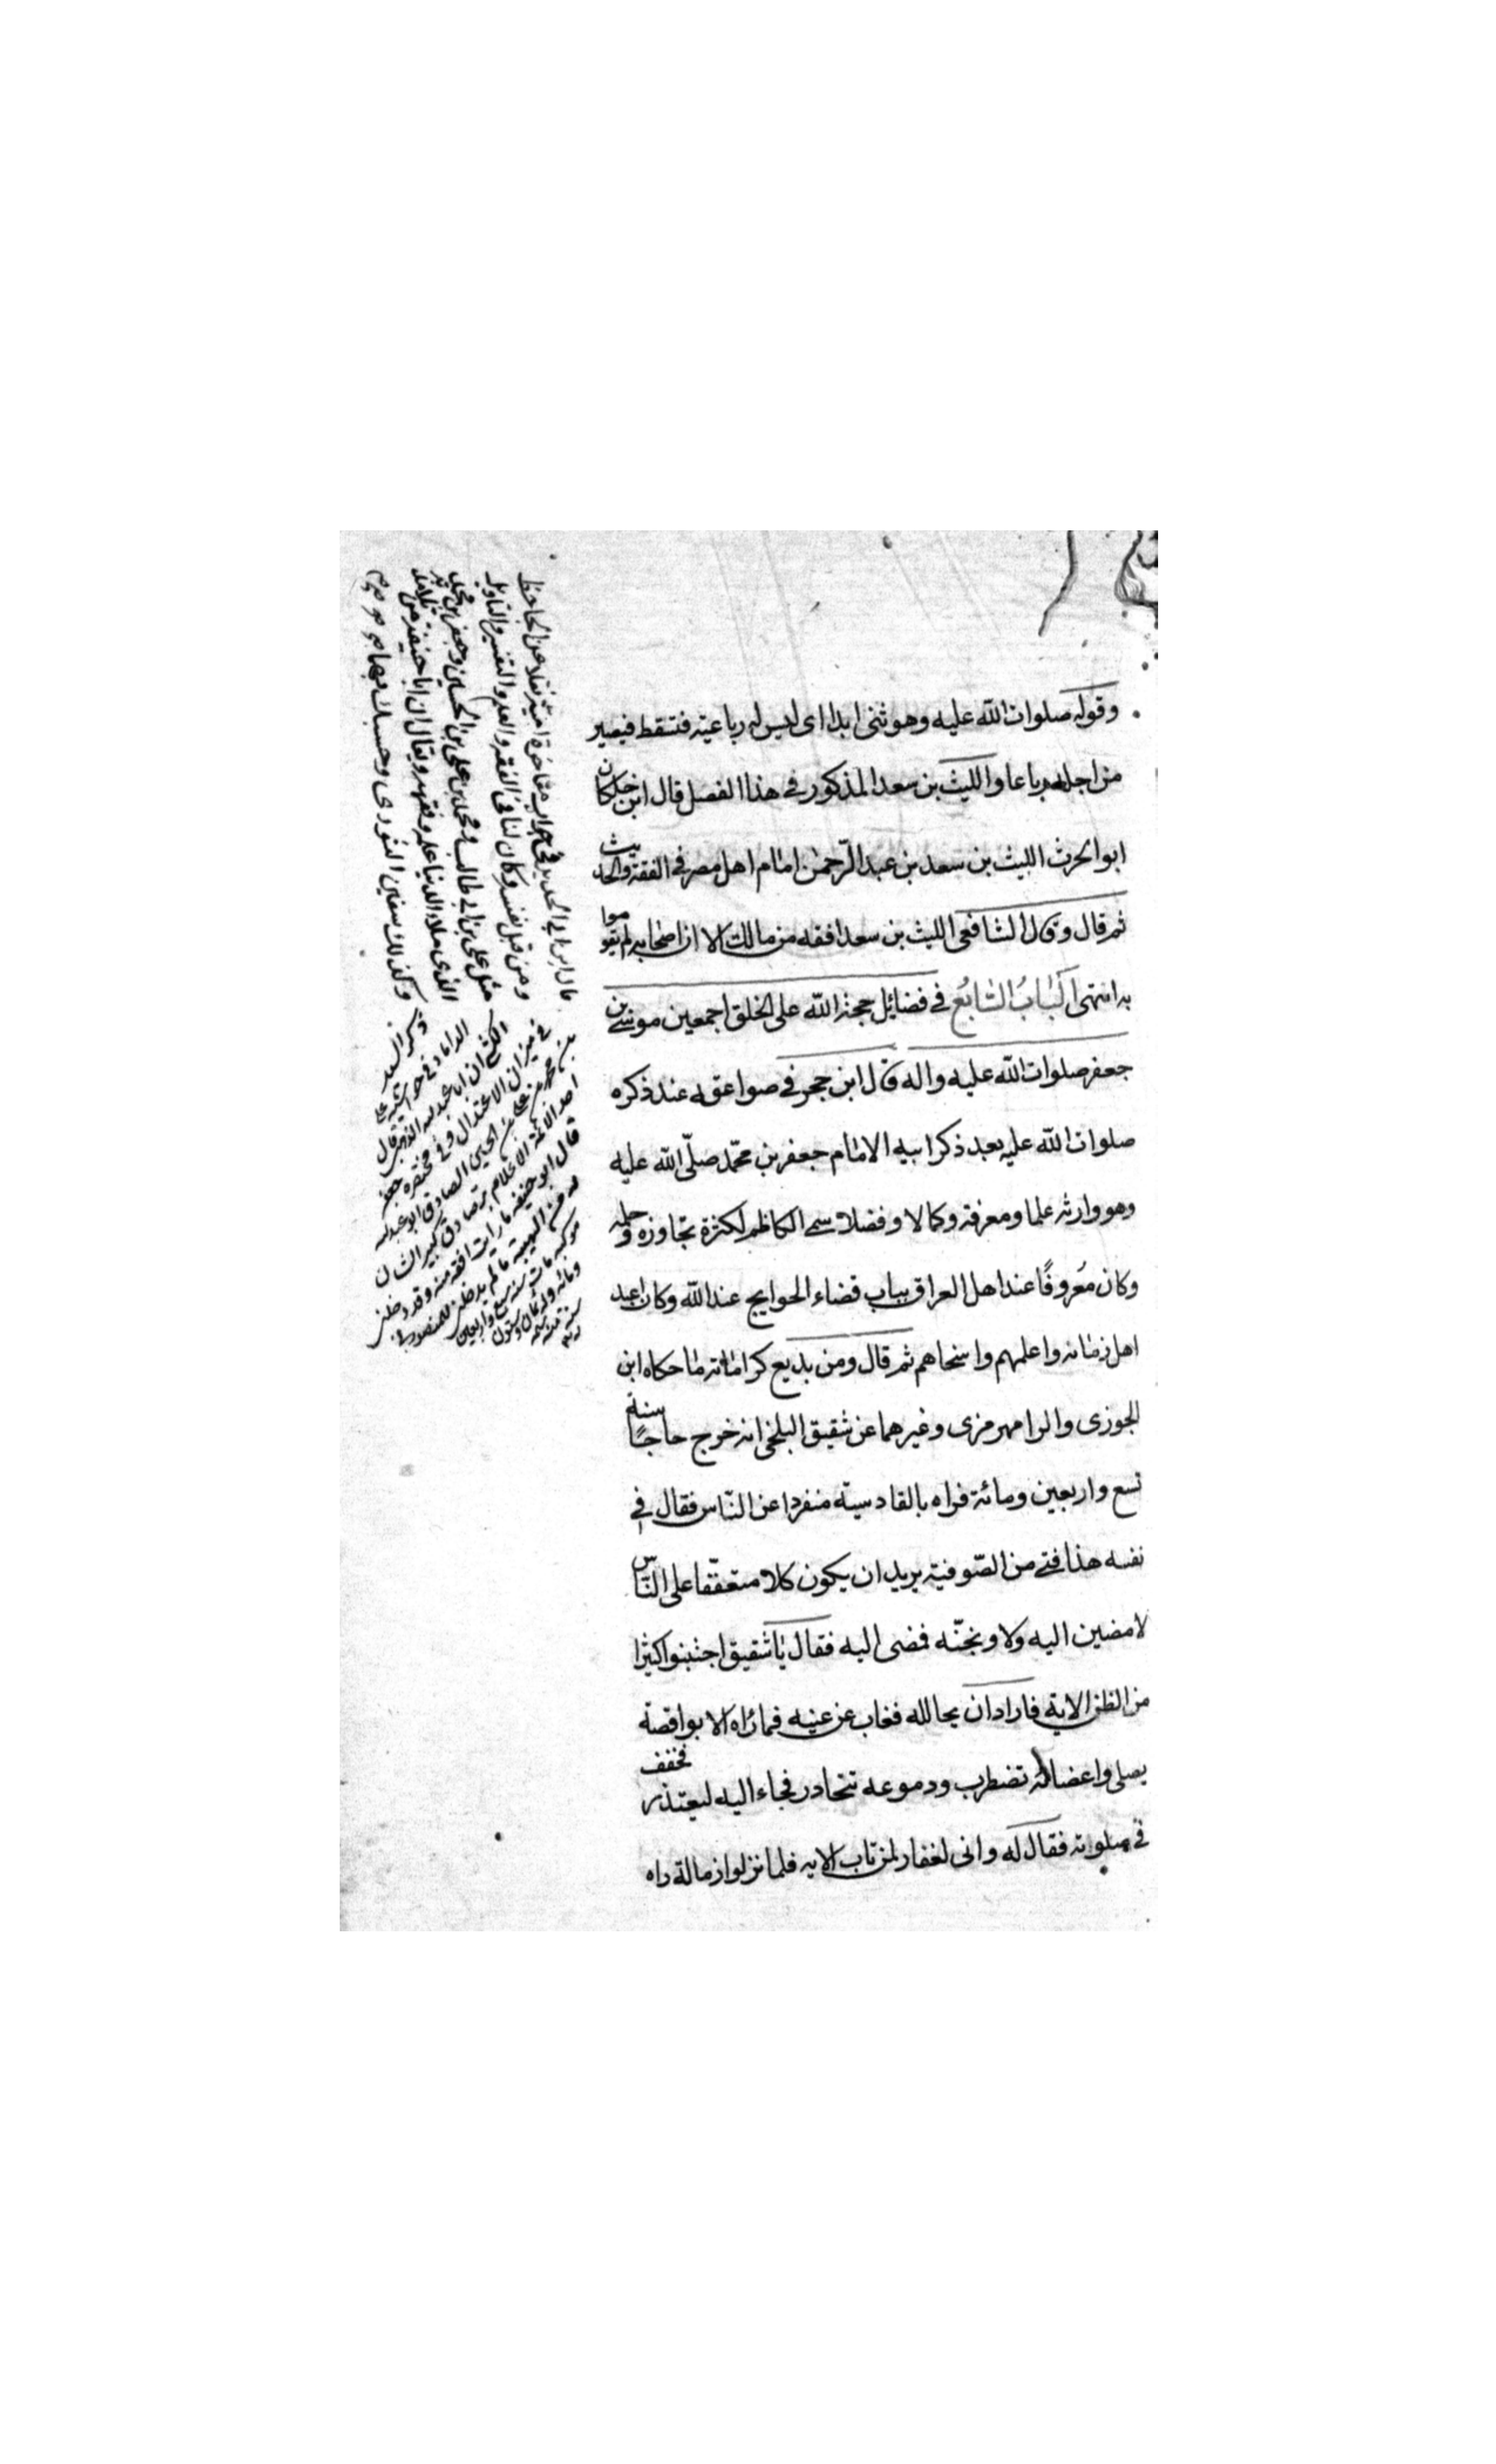 وقوله صلوات الله عليه وهو ثنى ابدا اى ليس له رباعيته فتسقط فيصير
من اجله رباعا والليث بن سعد المذكور فى هذا الفصل قال ابن خلكان
ابو الحرث الليث بن سعد بن عبد الرحمن امام اهل مصر فى الفقه والحديث
ثم قال وقال الشافعى الليث بن سعد افقه من مالك الا ان اصحابه لم يقوموا
به انتهى الباب السابع فى فضايل حجة الله على الخلق اجمعين موسى بن
جعفر صلوات الله عليه واله قال ابن حجر فى صواعقه عند ذكره
صلوات الله عليه بعد ذكر ابيه الامام جعفر بن محمد صلى الله عليه
وهو وارثه علما ومعرفة وكمالا وفضلا سمى الكاظم لكثرة تجاوزه وحلمه
وكان معروفا عند اهل العراق بباب قضاء الحوايج عند الله وكان اعبد
اهل زمانه واعلمهم واسخاهم ثم قال ومن بديع كراماته ما حكاه ابن
الجوزى والرامهرمزى وغيرهما عن شقيق البلخى انه خرج حاجا سنة
تسع واربعين ومائة فراه بالقادسية منفردا عن الناس فقال فى
نفسه هذا فتى من الصوفية يريد ان يكون كلا متعففا على الناس
لامضين اليه ولاوبخنه فمضى اليه فقال يا شقيق اجتنبوا كثيرا
من الظن الاية فاراد ان يحالله فغاب عن عينيه فما راه الا بواقصة
يصلى واعضائه تضطرب ودموعه تتحادر فجاء اليه ليعتذر فخفف
فى صلوته فقال له وانى لغفار لمن تاب الايه فلما نزلوا زمالة راه
قال ابن ابى الحديد فى جواب مفاخرة امية نقلا عن الجاحظ
ومن قبل نفسه وكان لنا فى الفقه والعلم والتفسير والتاويل
مثل على بن ابى طالب ومحمد بن على بن الحسين وجعفر بن محمد
الذى ملاء الدنيا علمه وفقهه ويقال ان ابا حنيفة من تلامذته
وكذلك سفين الثورى وحسبك بهما
ذكر السيد
الداماد فى حواشيه على
ان ابا عبد الله الذهبى قال
فى ميزان الاعتدال وفى مختصره جعفر
بن محمد بن على بن الحسين الصادق ابو عبد الله
احد الائمة الاعلام بر صادق كبير الشان
قال ابو حنيفة ما رايت افقه منه وقد دخلنى
له من الهيبة ما لم يدخلنى للمنصور فى
موكبه مات سنة ثمان واربعين
ومائه وله ثمان وستون
سنة